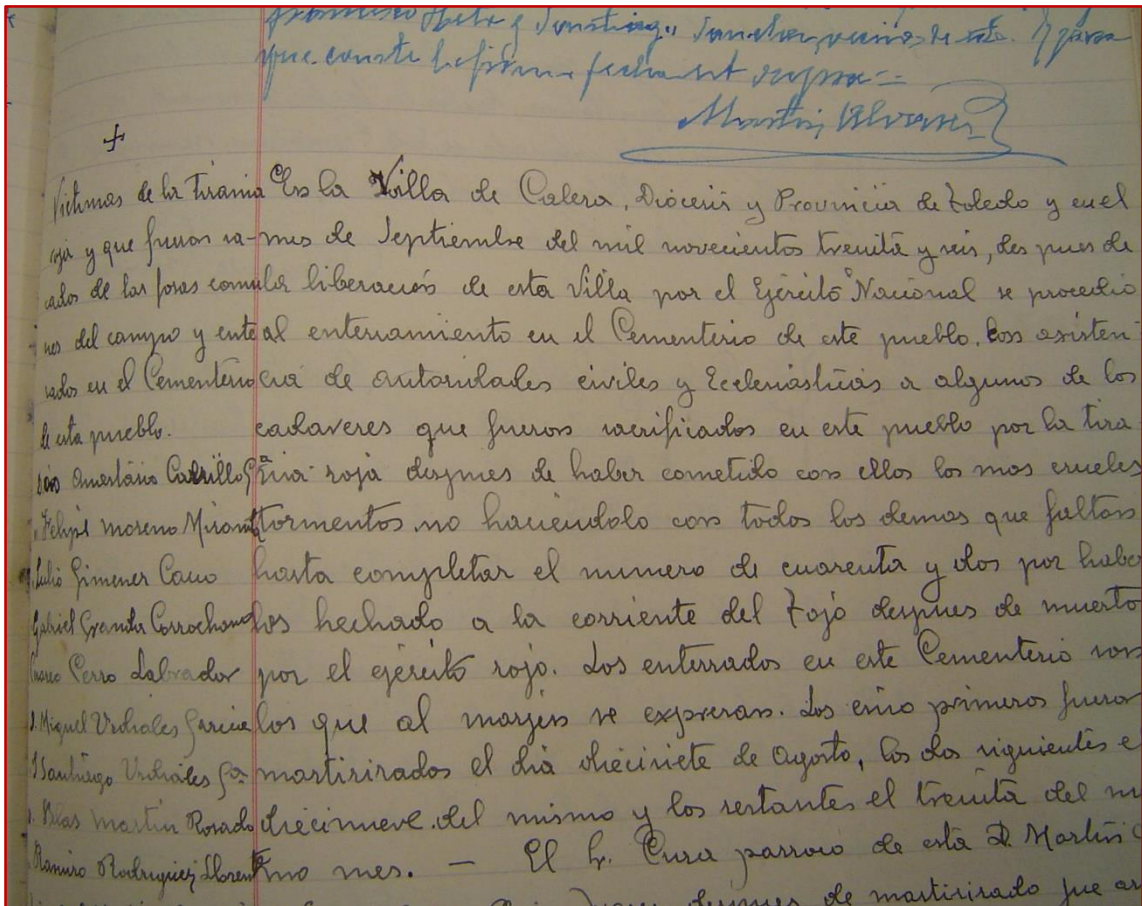 que conste lo firmo fecha ut supra =
Martin Alvarez
+
Victimas de la tirania
roja y que fueron sa-
cados de las fosas comu
nes del campo y ente
rrados en el Cementerio
de esta pueblo.
Amestasio Carrillo Gª
" Felipe Moreno Miranda
Julio Gimenez Cano
Gabriel Granda Corrochano
Cerro Labrador
D. Miguel Urdiales Garcia
D Santiago Urdiales Gª
D. Blas Martin Rosado
Ramiro Rodriguez Llorente
En la Villa de Calera, Diócesis y Provincia de Toledo y en el
mes de Septiembre del mil novecientos treinta y seis, des pues de
la liberación de esta Villa por el Ejército Nacional se procedio
al enterramiento en el Cementerio de este pueblo. con asisten
cia de autoridades civiles y Eclesiásticas a algunos de los
cadaveres que fueron sacrificados en este pueblo por la tira
nia roja despues de haber cometido con ellos los mas crueles
tormentos no haciendolo con todos los demas que faltan
hasta completar el numero de cuarenta y dos por haber
los hechado a la corriente del Tajo despues de muerto
por el ejército rojo. Los enterrados en este Cementerio son
los que al margen se expresan. Los cinco primeros fueron
martirizados el dia diecisiete de Agosto, los dos siguientes e
diecinueve del mismo y los restantes el treinta del mi
mo mes. — El Sr. Cura parroco de esta D. Martin
despues de martirizado fue ar